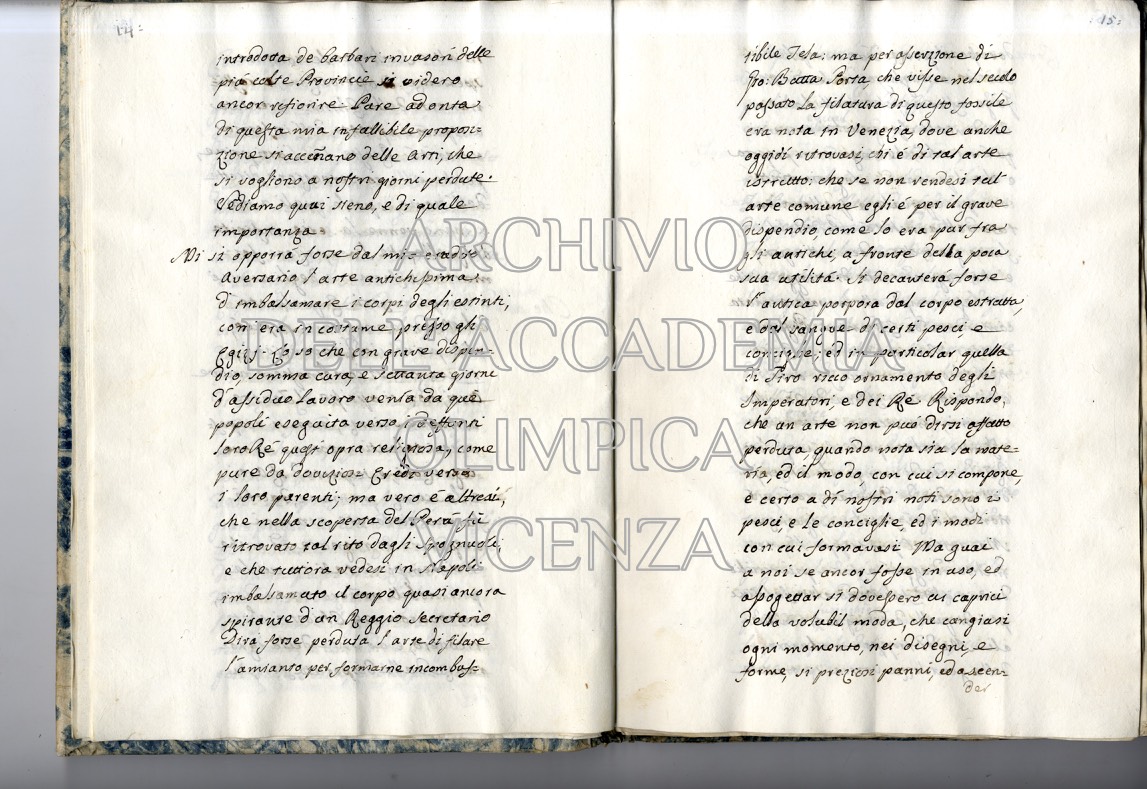 14:
introdotta de barbari invasori delle
più colte Provincie si videro
ancor rifiorire Pare ad onta
di questa mia infallibile proposi=
zione si accennano delle Arti, che
si vogliono a nostri giorni perdute.
Vediamo quai sieno, e di quale
importanza
Mi si opporrá forse dal mio
Aversario l'arte antichissima
d'imbalsamare i corpi degli estinti,
com era in costume presso gli
Egizj. Io so che con grave dispen=
dio, somma cura, e settanta giorni
d'assiduo lavoro venia da que
popoli eseguita verso i deffunti
loro Ré quest opra religiosa, come
pure da doviziosi Eredi verso
i loro parenti; ma vero é altresí,
che nella scoperta del Perú fú
ritrovato tal rito dagli Spagnuoli,
e che tuttora vedesi in Napoli
imbalsamato il corpo quasi ancora
spirante d'un Reggio secretario
Dirá forse perduta l'arte di filare
l'amianto per formarne incombus=
15:
tibile Tela: ma per asserzione di
Gio: Batta Porta, che visse nel secolo
passato la filatura di questo fossile
era nota in Venezia, dove anche
oggidí ritrovasi, chi é di tal arte
istrutto: che se non vendesi tal
arte comune egli é per il grave
dispendio, come lo era pur fra
gli antichi, a fronte della poca
sua utilitá. Si decanterá forse
l'antica porpora dal corpo estratta,
e dal sangue di certi pesci, e
conciglie; ed in particolar quella
di Tiro ricco ornamento degli
Imperatori, e dei Ré Rispondo,
che un arte non puó dirsi affatto
perduta, quando nota sia la mate=
ria, ed il modo, con cui si compone,
e certo a dí nostri noti sono i
pesci, e le conciglie, ed i modi
con cui formavasi Ma guai
a noi se ancor fosse in uso, ed
assogettar si dovessero ai caprici
della volubil moda, che cangiasi
ogni momento, nei disegni, e
forme, si preziosi panni, ed ascen=
der
ARCHIVIO
DELL'ACCADEMIA
OLIMPICA
VICENZA